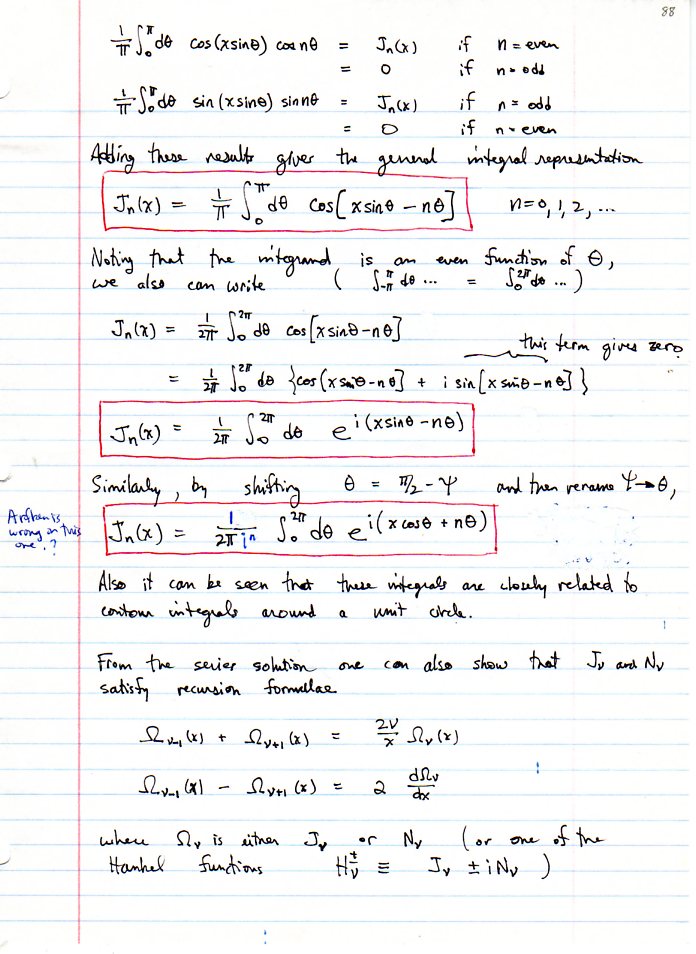 88
1/π ∫₀^π dθ cos(x sinθ) cos nθ = Jₙ(x) if n = even
= 0 if n = odd
1/π ∫₀^π dθ sin(x sinθ) sin nθ = Jₙ(x) if n = odd
= 0 if n = even
Adding these results gives the general integral representation
Jₙ(x) = 1/π ∫₀^π dθ cos[x sinθ − nθ] n = 0, 1, 2, ...
Noting that the integrand is an even function of θ,
we also can write ( ∫_{-π}^{π} dθ ... = ∫₀^{2π} dθ ... )
Jₙ(x) = 1/2π ∫₀^{2π} dθ cos[x sinθ − nθ]
this term gives zero
= 1/2π ∫₀^{2π} dθ {cos[x sinθ − nθ] + i sin[x sinθ − nθ]}
Jₙ(x) = 1/2π ∫₀^{2π} dθ e^{i(x sinθ − nθ)}
Similarly, by shifting θ = π/2 − ψ and then rename ψ → θ,
Arfken is
wrong on this
one.?
Jₙ(x) = 1/(2π iⁿ) ∫₀^{2π} dθ e^{i(x cosθ + nθ)}
Also it can be seen that these integrals are closely related to
contour integrals around a unit circle.
From the series solution one can also show that J_ν and N_ν
satisfy recursion formulae
Ω_{ν-1}(x) + Ω_{ν+1}(x) = 2ν/x Ω_ν(x)
Ω_{ν-1}(x) − Ω_{ν+1}(x) = 2 dΩ_ν/dx
where Ω_ν is either J_ν or N_ν (or one of the
Hankel functions H_ν^± ≡ J_ν ± i N_ν )